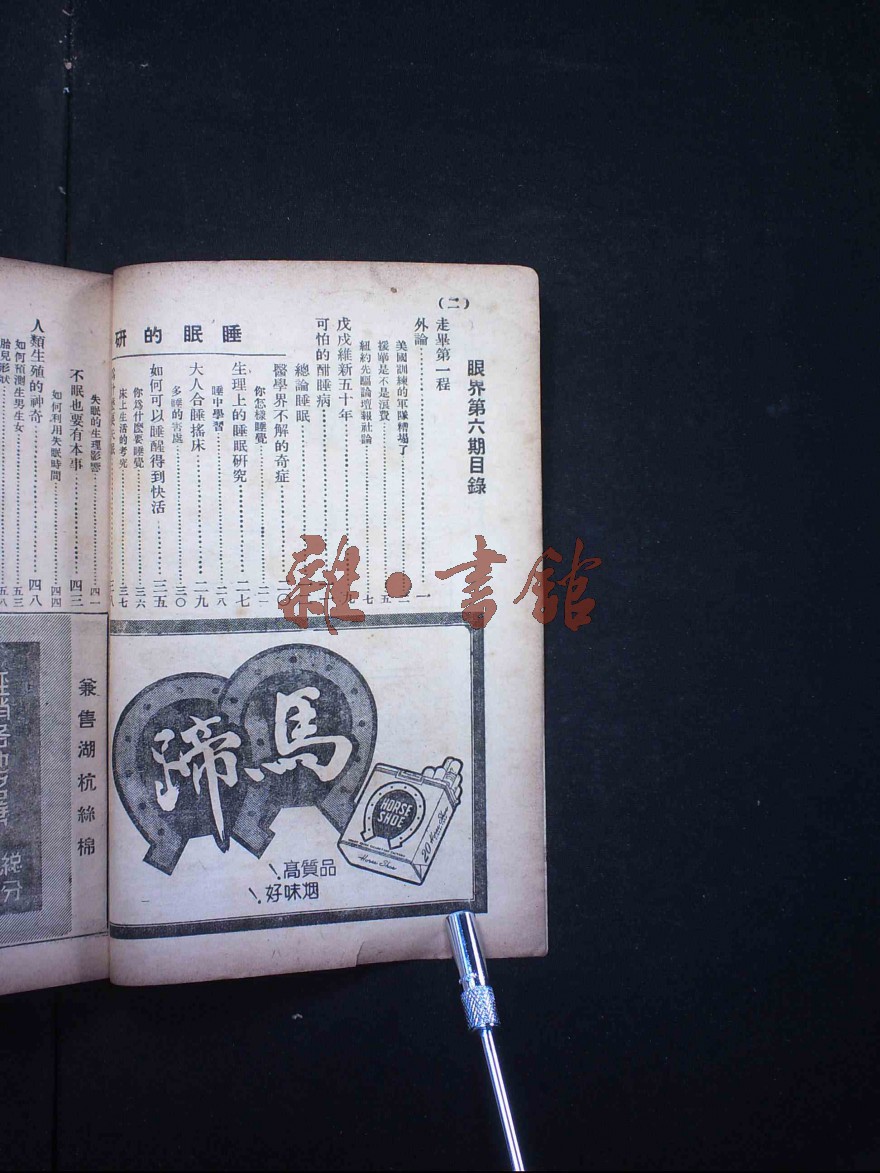 (二)
眼界第六期目錄
走畢第一程……一
外論
美國訓練的軍隊糟塌了……二
援華是不是浪費……五
紐約先驅論壇報社論……七
戊戌維新五十年……九
可怕的酣睡病
睡眠的研
總論睡眠
醫學界不解的奇症……二〇
你怎樣睡覺……二二
生理上的睡眠研究……二七
睡中學習……二八
大人合睡搖床……二九
多睡的害處……三〇
如何可以睡醒得到快活……三五
你爲什麼要睡覺……三六
床上生活的考究……三七
失眠的生理影響……四一
不眠也要有本事……四三
如何利用失眠時間……四四
人類生殖的神奇……四八
如何預測生男生女……五三
胎兒形狀……五八
雜·書館
馬蹄
HORSE SHOE
20 Horse Shoe
Horse Shoe
高質品
好味烟
兼售湖杭絲棉